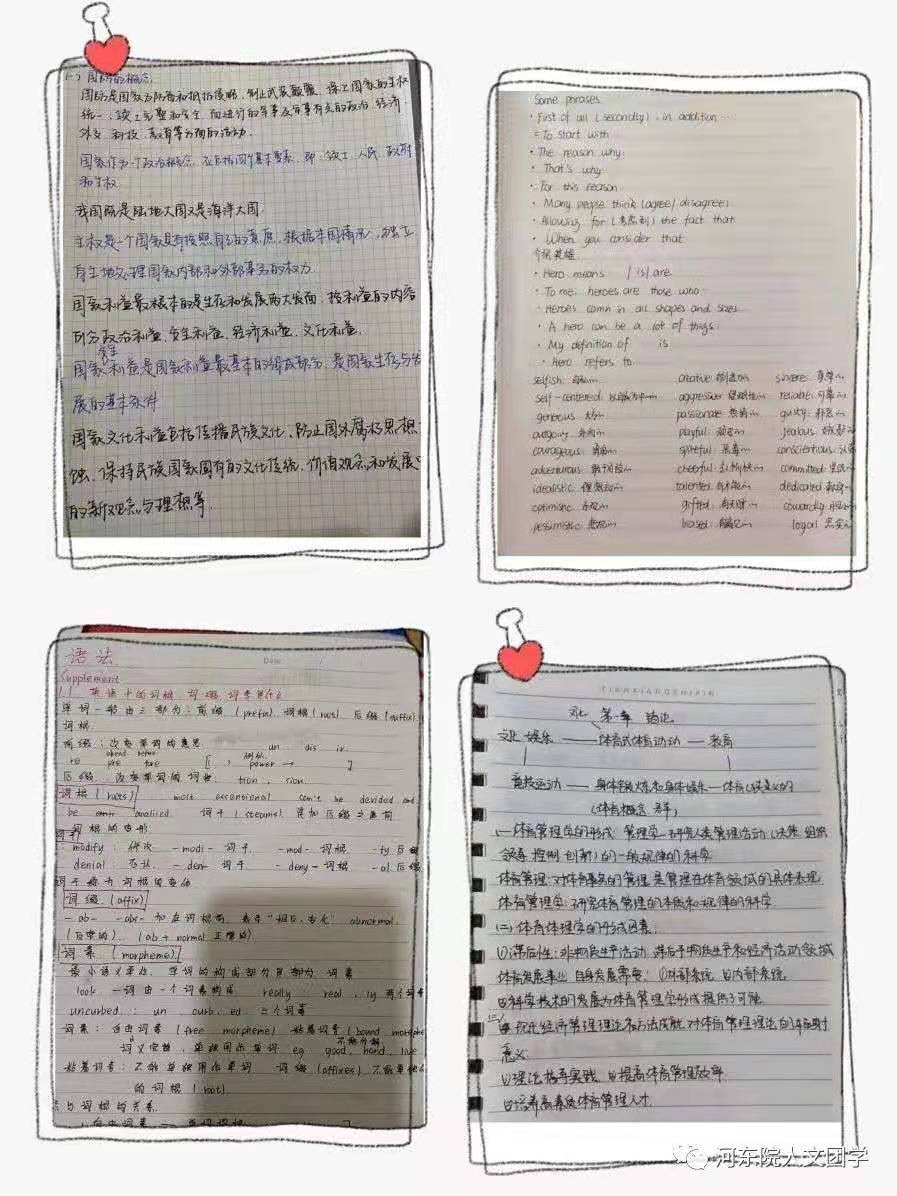 (一) 国防的概念
国防是国家为防备和抵抗侵略,制止武装颠覆,保卫国家的主权
统一、领土完整和安全而进行的军事及与军事有关的政治、经济、
外交、科技、教育等方面的活动.
国家作为一个政治概念,应包括四个基本要素,即:领土、人民、政府
和主权
我国既是陆地大国又是海洋大国
主权是一个国家具有按照自己的意愿,根据本国情况,独立
自主地处理国家内部和外部事务的权力
国家利益最根本的是生存和发展两大方面,按利益的内容
可分政治利益、安全利益、经济利益、文化利益.
国家安全利益是国家利益最基本的组成部分,是国家生存与发
展的基本条件
国家文化利益包括传播民族文化、防止国外腐朽思想
蚀、保持民族国家固有的文化传统、价值观念和发展
的新观念与理想等.
Some phrases.
· First of all (secondly), in addition ...
= To start with
· The reason why
· That's why
· For this reason
· Many people think (agree / disagree)
· Allowing for (考虑到) the fact that
· When you consider that
介绍英雄
· Hero means / is / are
· To me, heroes are those who
· Heroes comn in all shapes and sizes
· A hero can be a lot of things:
· My definition of is
· Hero refers to
selfish: 自私的 creative: 创造的 sincere: 真挚的
self-centered: 以自我为中心的 aggressive: reliable: 可靠的
generous: 大方的 passionate: 热情的 guilty:
outgoing: 外向的 playful: jealous:
courageous: 勇敢的 spiteful: 恶毒的 conscientious:
adventurous: cheerful: committed:
idealistic: talented: dedicated:
optimistic: 乐观的 gifted: 有天赋的 cowardly:
pessimistic: 悲观的 biased: 有偏见的 loyal: 忠实的
语法
Date
Supplement
1.1 英语中的词根、词缀、词素
单词一般由三部分: 前缀 (prefix) 词根 (root) 后缀 (suffix)
词根.
前缀: 改变单词的意思 un dis ir
re pre fore [ power → ]
后缀: 改变单词的词性 tion, sion
词根 (roots) most essensional can't be devided and
be analised. 词干 (stepms) 是加后缀之前
词根的变形
词干
modify: 修改 -modi- 词干 -mod- 词根 -fy 后缀
denial: 否认 -den- 词干 -deny- 词根 -al 后缀
词干
词缀 (affix)
-ab- -abs- 加在词根前, 表示"相反, 变化" abnormal.
(反常的). (ab + normal 正常的)
词素 (morpheme)
最小语义单位, 单词的构成部分皆都为 词素
look 一词由一个词素构成 really: real, ly 两个词素
uncurbed: un curb. ed 三个词素
词素: 自由词素 (free morpheme) 粘着词素 (bound morpheme
词义完整, 单独用作单词 eg good, hand, live
粘着词素: 不能单独用作单词 词缀 (affixes)
的词根 (root).
与词根的关系.
TIANXIANGSHIXIN
文化 第一章 绪论
文化 娱乐 —— 体育式体育活动 — 教育
竞技运动 — 身体锻炼和身体娱乐 — 体育(狭义的)
(体育概念 关系)
(一)体育管理学的形成: 管理学: 研究人类管理活动(决策、组织
领导、控制、创新)的一般规律的科学
体育管理: 对体育事务的管理,是管理在体育领域的具体表现.
体育管理学: 研究体育管理的本质和规律的科学.
(二)体育体理学的形成因素.
①滞后性: 非物质生产活动,滞后于物质生产和经济活动领域
体育发展事业 自身发展需要: ①外部系统 ②内部系统
②科学技术的发展为体育管理学形成提供了可能
③现代经济管理理论和方法成就,对体育管理理论的
意义:
①理论指导实践 ②提高体育管理效率
③培养高素质体育管理人才
河东院人文团学